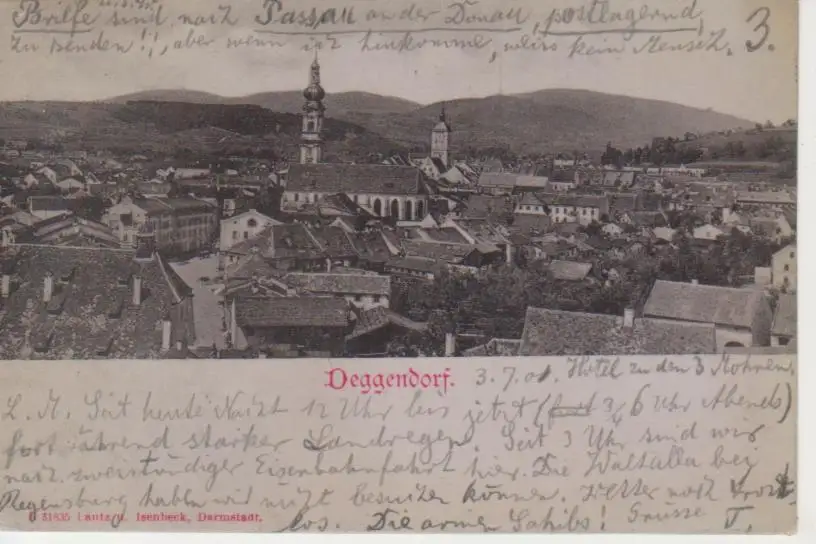 Briefe sind nach Passau an der Donau, postlagernd,
zu senden!!, aber wenn ich hinkomme, weiss kein Mensch. 3.
Deggendorf. 3.7.01. Hotel zu den 3 Mohren,
L. M. Seit heute Nacht 12 Uhr bis jetzt (fast 3/4 6 Uhr Abends)
fortwährend starker Landregen. Seit 3 Uhr sind wir
nach zweistündiger Eisenbahnfahrt hier. Die Walhalla bei
Regensburg haben wir nicht besuchen können. Wetter noch trost-
los. Die armen Sahibs! Grüsse T.
31635 Lautz u. Isenbeck, Darmstadt.